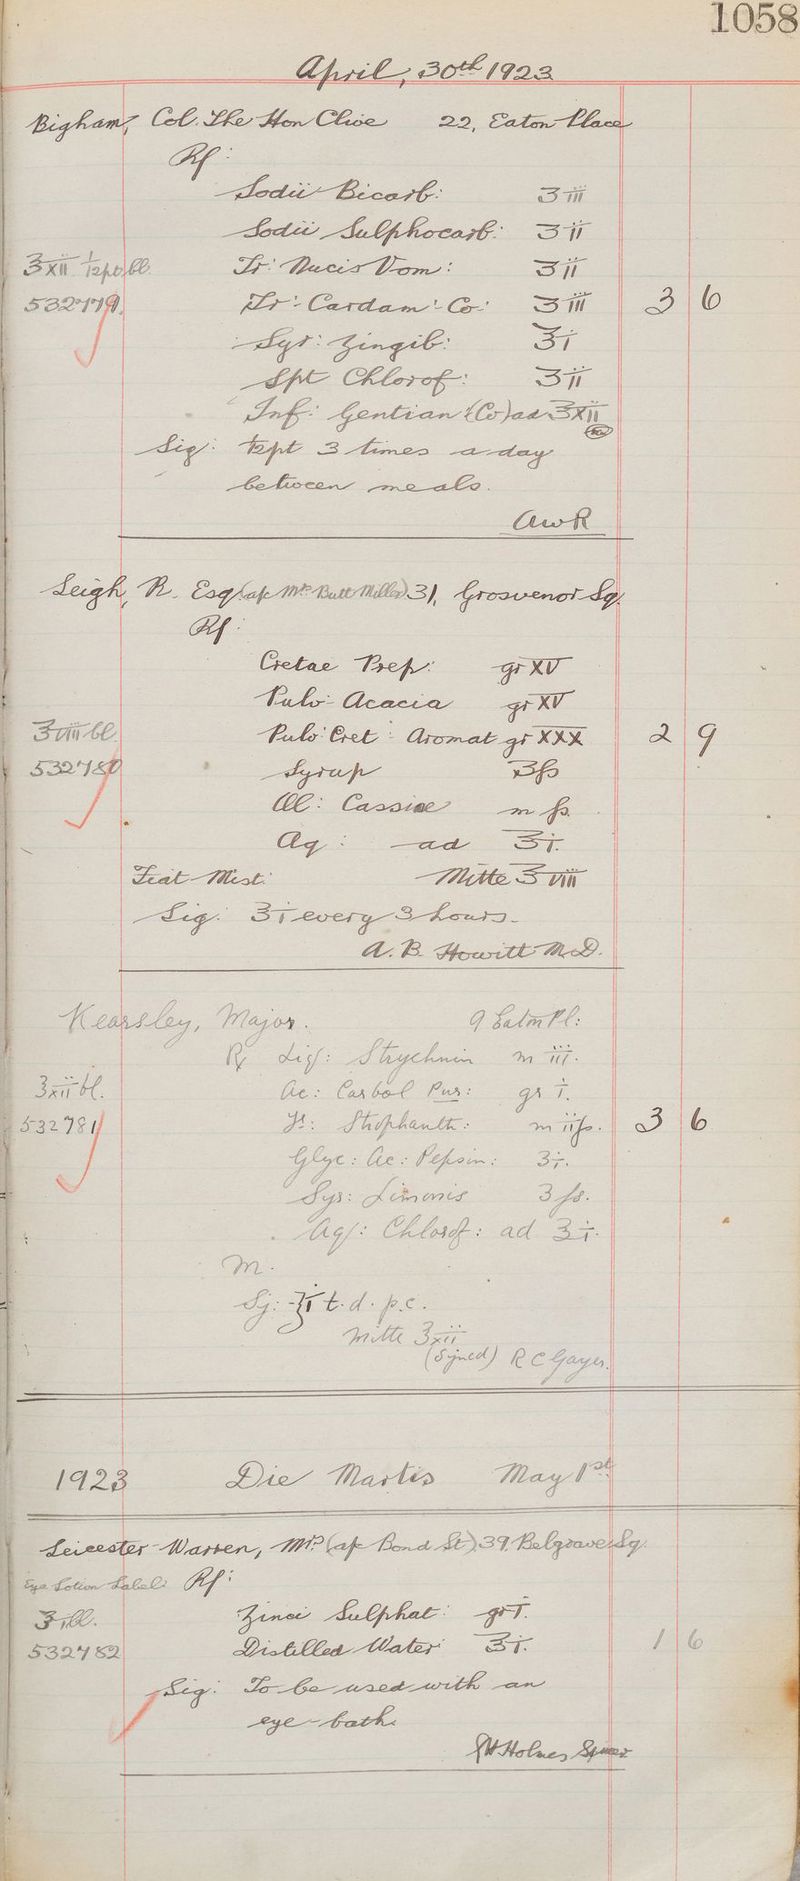 1058
April, 30th 1923
Bigham, Col. The Hon Clive 22, Eaton Place
Rx:
Sodii Bicarb: ʒiii
Sodii Sulphocarb: ʒii
℥xii 1/12pt bl. Tr: Nucis Vom: ʒii
532779. Tr: Cardam: Co: ʒiii 3 6
Syr: Zingib: ℥i
Spt Chlorof: ʒii
Inf: Gentian: (Co) ad ℥xii
Sig: 1/12pt 3 times a day
between meals.
AWR
Leigh, R. Esq. (a/c Mrs. Butt Miller) 31, Grosvenor Sq.
Rx:
Cretae Prep: gr XV
Pulv: Acacia gr XV
℥viii bl. Pulv: Cret: Aromat gr XXX 2 9
532780 Syrup ʒfs
Ol: Cassiae m fs.
Aq: ad ℥i.
Fiat Mist: Mitte ℥viii
Sig: ℥i every 3 hours.
A. B. Howitt M.D.
Kearsley, Major. 9 Eaton Pl:
Rx Liq: Strychnin m iii.
℥xii bl. Ac: Carbol Pur: gr i.
532781 Tr: Strophanth: m iifs. 3 6
Glyc: Ac: Pepsin: ʒi.
Syr: Limonis ʒfs.
Aq: Chlorof: ad ℥i.
M.
Sig: ℥i t.d. p.c.
Mitte ℥xii
(Signed) R C Gayer.
1923 Die Martis May 1st
Leicester-Warren, Mrs. (a/c Bond St) 39, Belgrave Sq.
Eye Lotion Label: Rx:
℥i bl. Zinci Sulphat: gr i.
532782 Distilled Water ℥i. 1 6
Sig: To be used with an
eye-bath.
Holmes Spicer